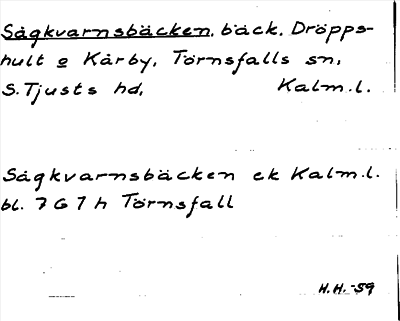 Sågkvarnsbäcken, bäck, Dröpps-
hult o Kårby, Törnsfalls sn,
S. Tjusts hd, Kalm.l.
Sågkvarnsbäcken ek Kalm.l.
bl. 7 G 7 h Törnsfall
H.H. -59